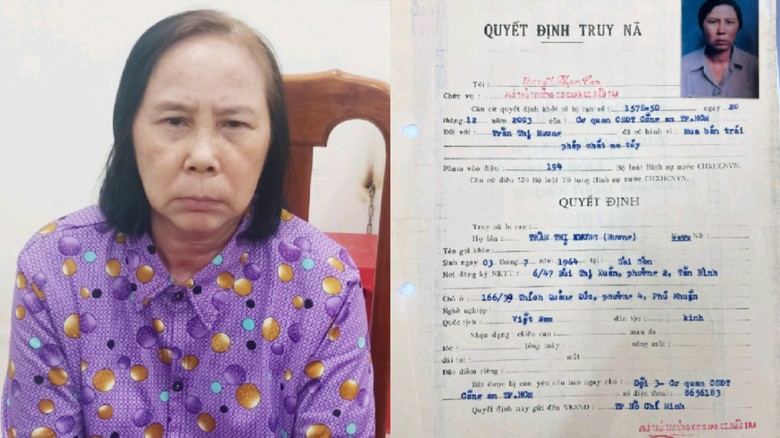 QUYẾT ĐỊNH TRUY NÃ
Tôi :
Chức vụ : PHÓ THỦ TRƯỞNG CƠ QUAN CS ĐIỀU TRA
Căn cứ quyết định khởi tố bị can số : 1578-50 ngày 20
tháng 12 năm 2003 của : Cơ quan CSDT Công an TP.HCM
Đối với : Trần Thị Hương đã có hành vi : Mua bán trái
phép chất ma túy
Phạm vào điều : 194 Bộ luật Hình sự nước CHXHCNVN.
Căn cứ điều Bộ luật Tố tụng Hình sự nước CHXHCNVN.
QUYẾT ĐỊNH
Truy nã bị can :
Họ tên : TRẦN THỊ (Hương) Nữ
Tên gọi khác :
Sinh ngày 03 tháng 7 năm 1964 tại : Sài Gòn
Nơi đăng ký NKTT : 6/47 Bùi Thị Xuân, phường 2, Tân Bình
Chỗ ở : 166/39 Thích Quảng Đức, phường 4, Phú Nhuận
Nghề nghiệp :
Quốc tịch : Việt Nam dân tộc: kinh
Nhận dạng : chiều cao : màu da
tóc : lông mày : sống mũi :
dái tai : mắt :
Đặc điểm riêng :
Bắt được bị can yêu cầu báo ngay cho : Đội 3- Cơ quan CSDT
Công an TP.HCM số điện thoại : 8636183
Quyết định này gửi đến VKSND : TP Hồ Chí Minh
PHÓ THỦ TRƯỞNG CƠ QUAN CS ĐIỀU TRA